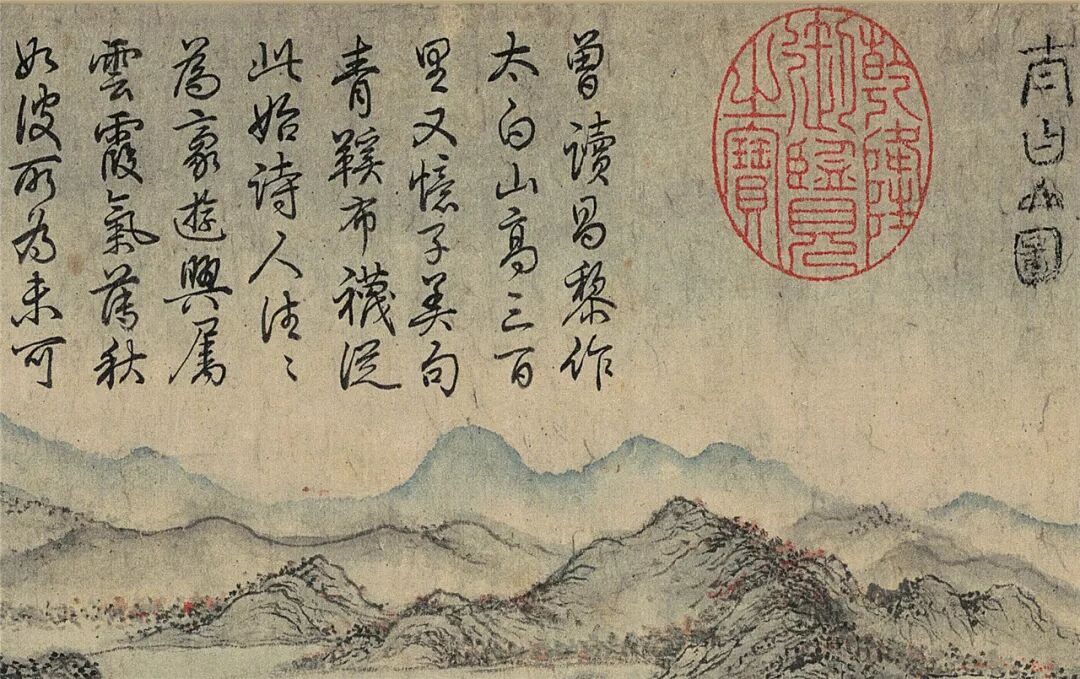 太白山圖
乾隆
御覽
之寶
曾讀昌黎作
太白山高三百
里又憶子美句
青鞵布襪從
此始詩人往〻
為豪遊興屬
雲霞氣薄秋
如彼所為未可